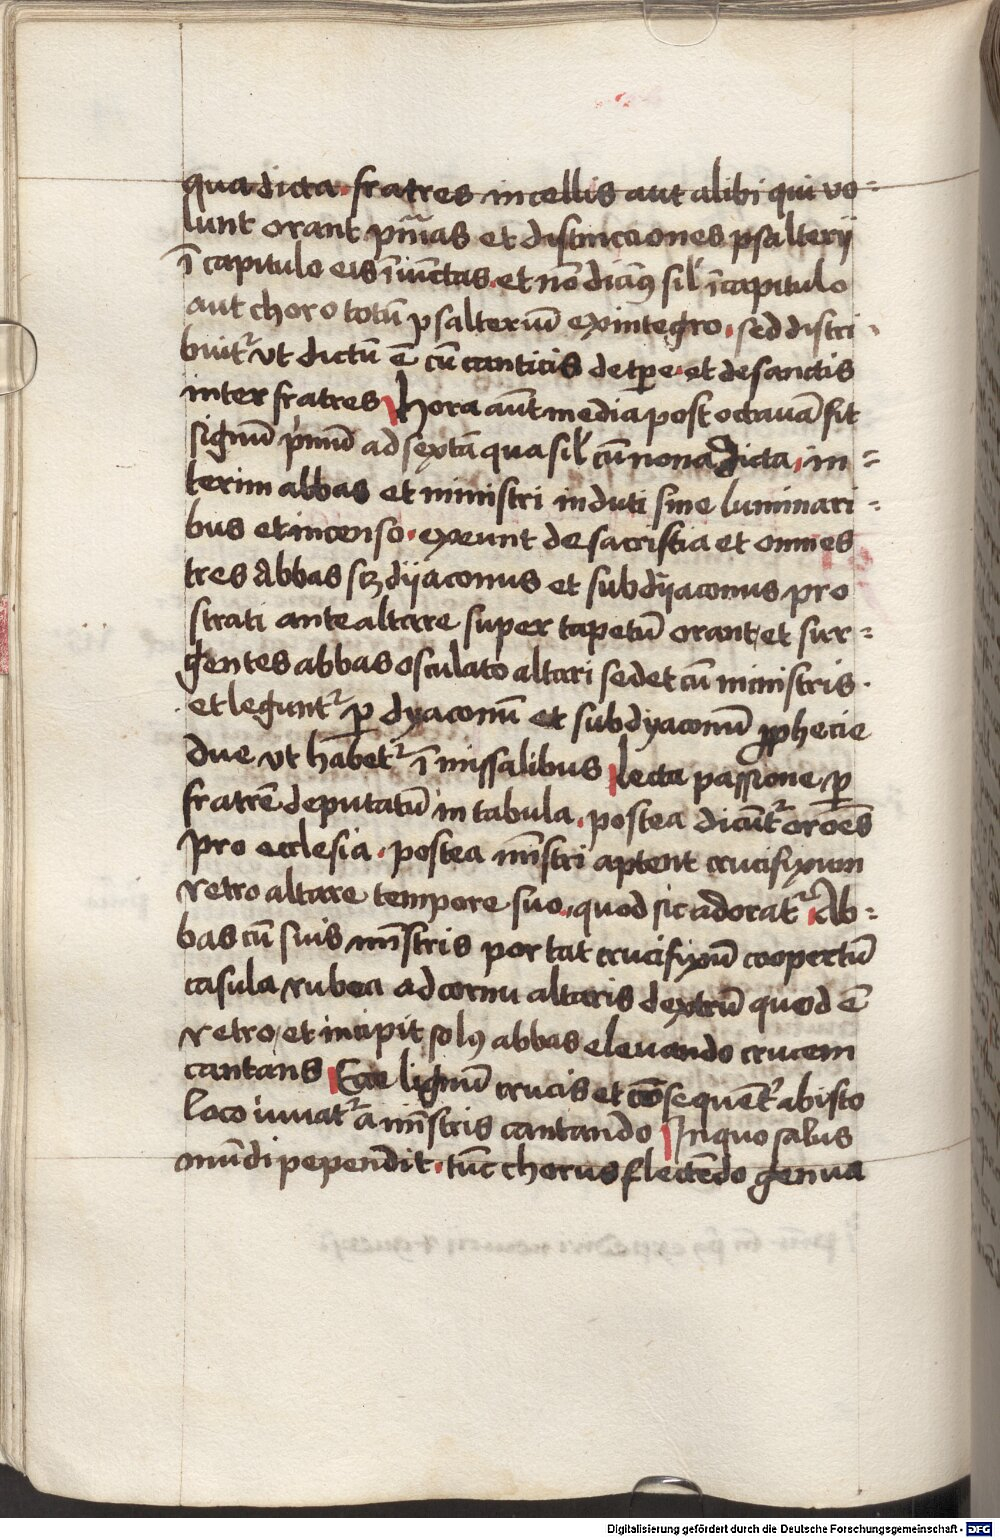 qua dicta. fratres in cellis aut alibi qui vo=
lunt orant pm̄as et distincciones psalterij
ī capitulo eis īiūctas. et nō dicāꝰ sil' ī capitulo
aut choro totū psalteriū ex integro. sed distri
buit᷑ vt dictū ē cū canticis de tꝑe. et de sanctis
inter fratres Hora aūt media post octauā fit
signū p̓mū ad sextā qua sil' cū nona dicta, in=
terim abbas et ministri induti sine luminari=
bus et incenso. exeunt de sacristia et omnes
tres Abbas scꝫ dijaconus et subdijaconus pro
strati ante altare super tapetū orant et sur=
gentes abbas osculato altari sedet cū ministris.
et legunt᷑ ꝑ dyaconū et subdyaconū ꝓphecie
due vt habet᷑ ī missalibus Lecta passione ꝑ
fratrē deputatū in tabula. postea dicūt᷑ orōes
pro ecclesia. postea mīstri aptent crucifixum
retro altare tempore suo. quod sic adorat᷑ Ab=
bas cū suis mīstris portat crucifixū coopertū
casula rubea ad cornu altaris dextrū quod ē
retro, et incipit solꝰ abbas eleuando crucem
cantans Ecce lignū crucis et cōsequēt᷑ ab isto
loco iuuat᷑ a mīstris cantando In quo salus
mūdi pependit. tūc chorus flectēdo genua
Digitalisierung gefördert durch die Deutsche Forschungsgemeinschaft - DFG